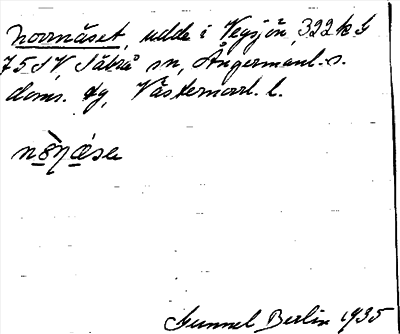 Norrnäset, udde i Vegsjön, 322 k G
75 SV, Säbrå sn, Ångermanl. s.
doms. tg, Västernorrl. l.
Gunnel Berlin 1935